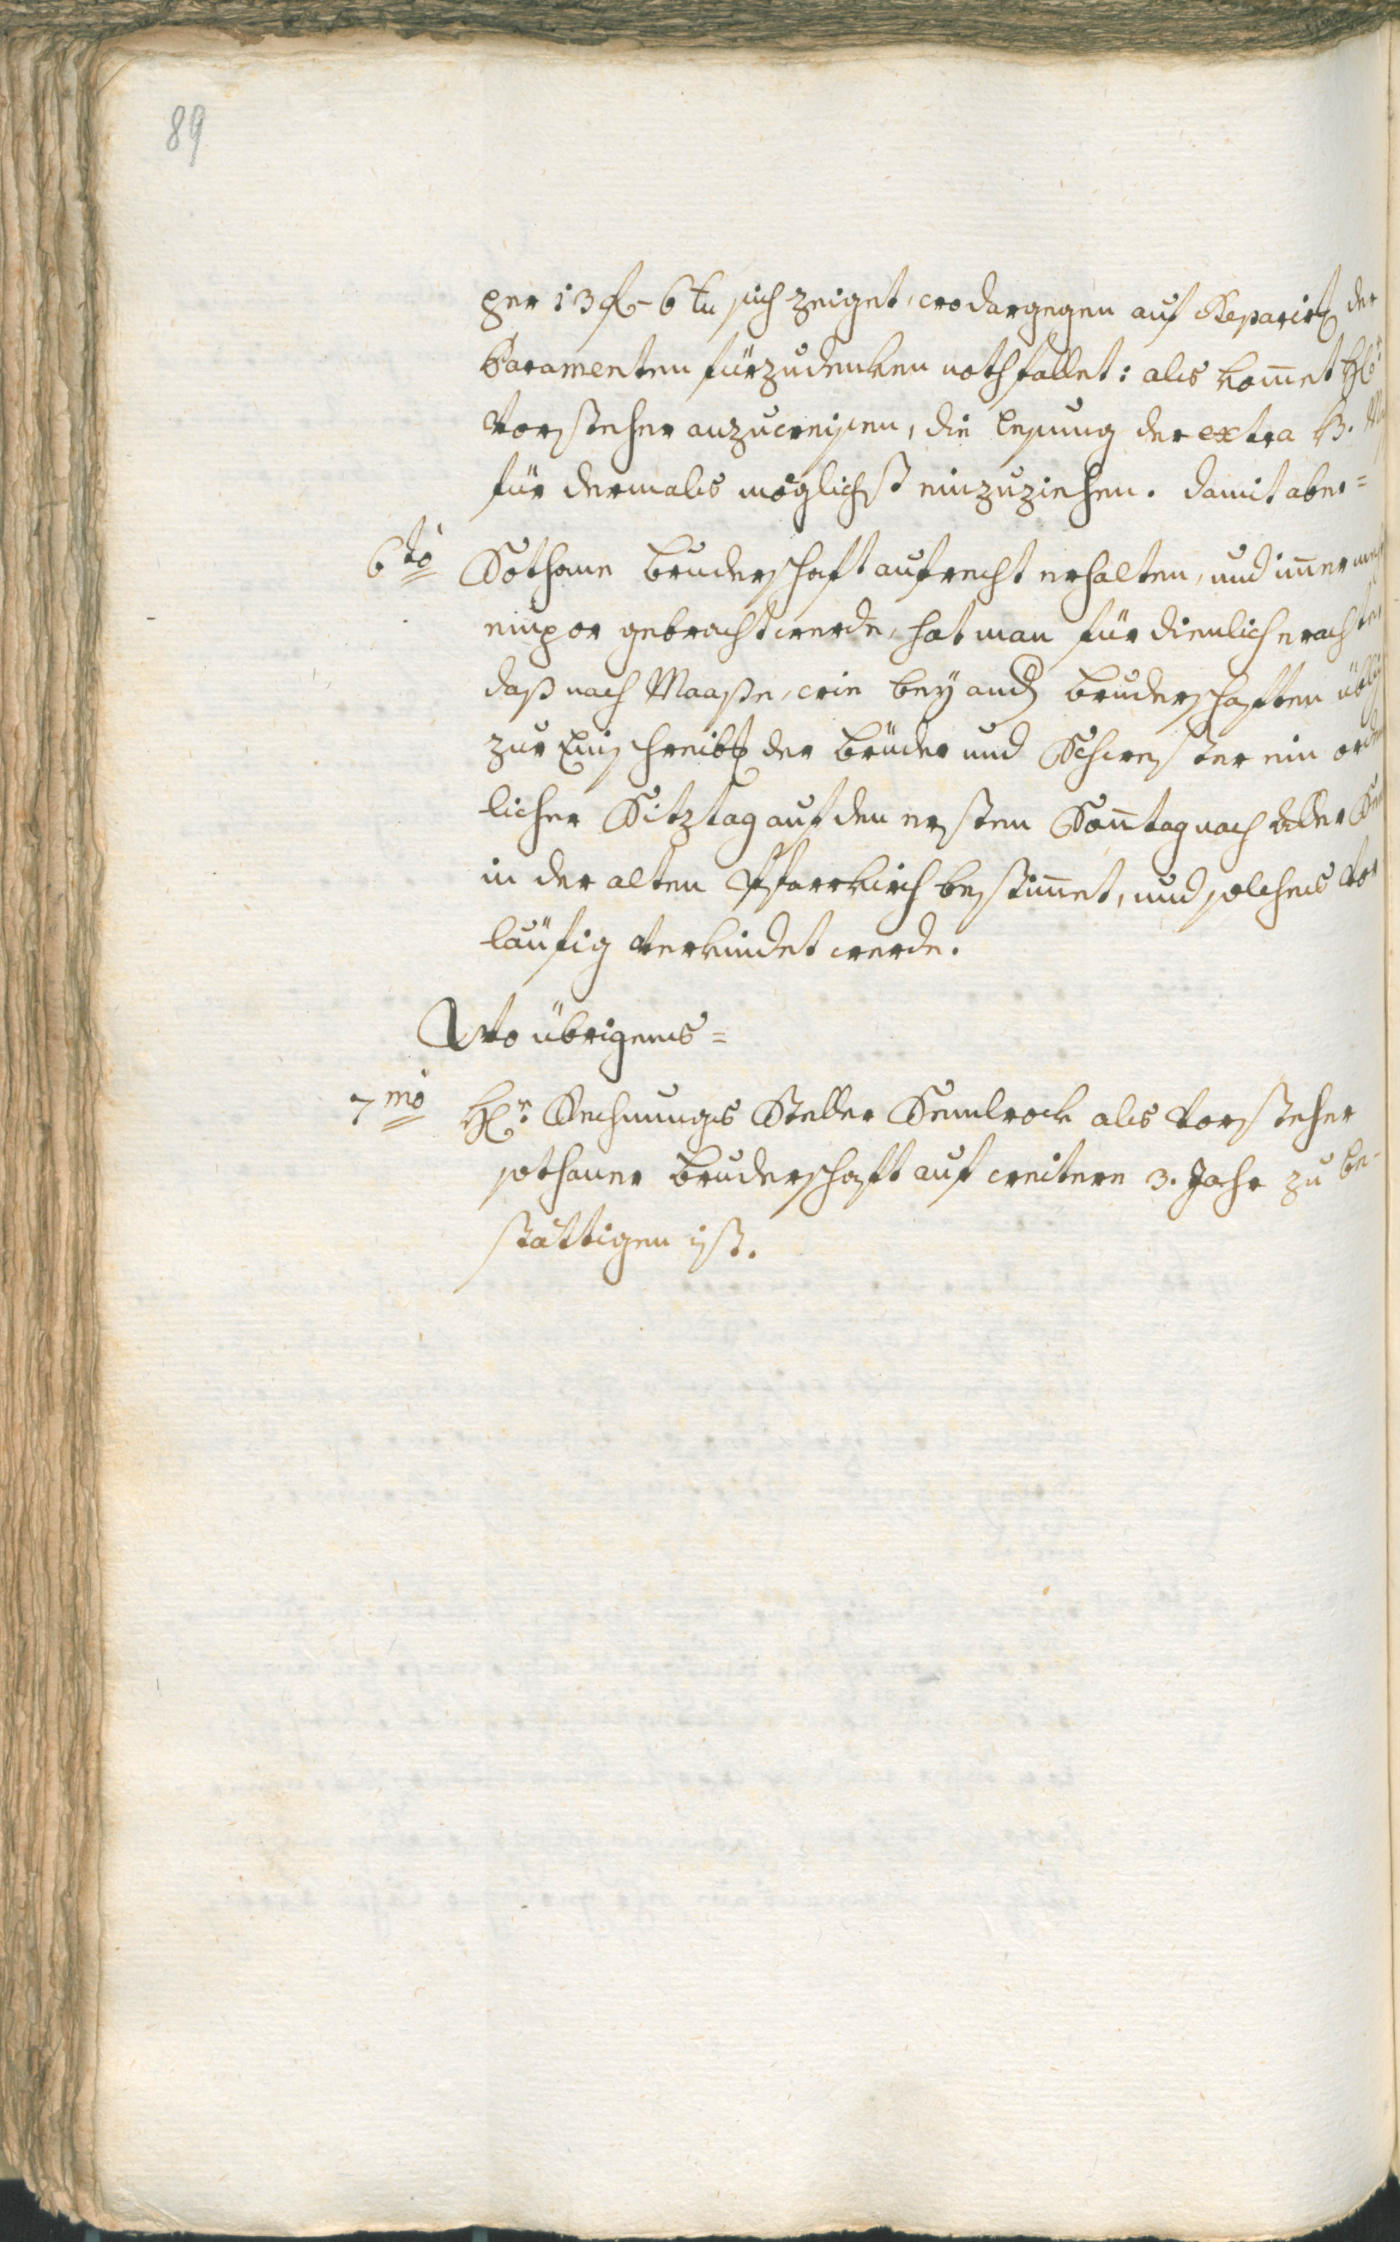 89
per 13 f - 6 kr sich zeiget, wo dargegen auf Reparirg der
Paramenten fürzudenken noth fallet: als komet Hr
Vorsteher anzuweisen, die lesung der extra B.
für dermals möglichst einzuziehen. damit aber=
6to Sothane bruderschaft aufrecht erhalten, und imer meh
empor gebracht werde, hat man für dienlich erachtet,
daß nach Maaße, wie beÿ andn bruderschaften übli
zur Einschreibg der brüder und Schwester ein orden
licher Sitztag auf den ersten Sontag nach aller See
in der alten Pfarrkirch bestimet, und solches vor
läufig verkindet werde.
Wo übrigens=
7mo Hr. Rechnungs Steller Semlrock als Vorsteher
sothaner bruderschaft auf weitere 3. Jahr zu be-
stättigen ist.